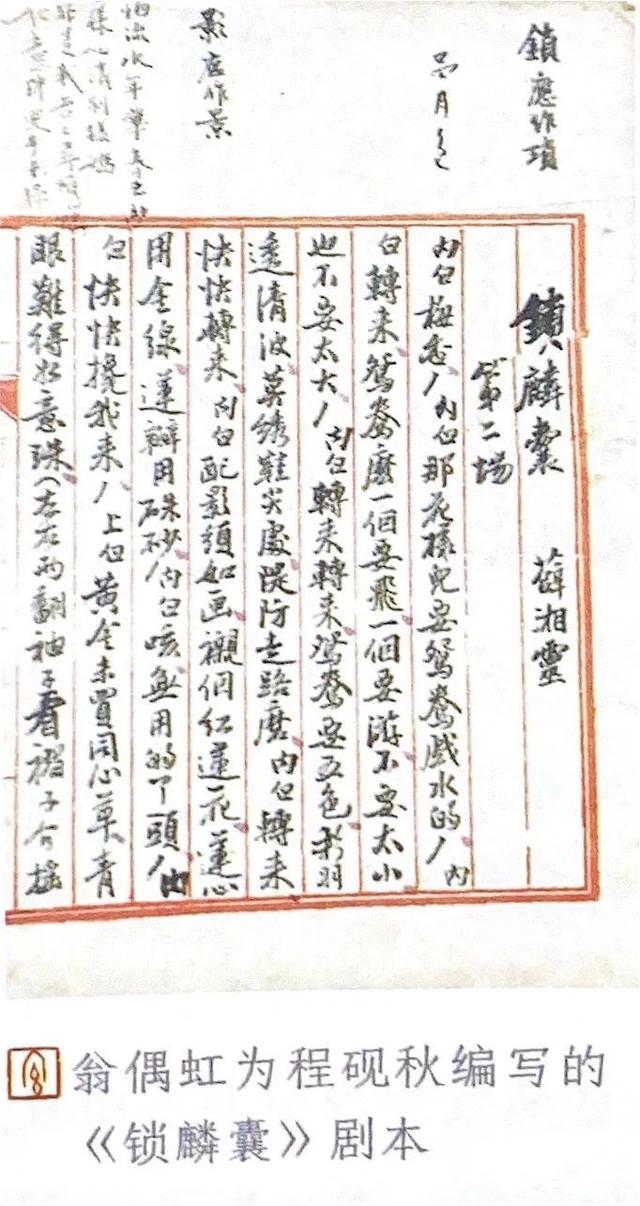 鎖應作瑣
影應作景
鎖麟囊 薛湘靈
第二場
內白梅香/內白那花樣兒要鴛鴦戯水的/內
白轉来鴛鴦麽一個要飛一個要游不要太小
也不要太大/內白轉来轉来鴛鴦要五色彩羽
透清波莫綉鞋尖處提防走路磨內白轉来
快快轉来內白配影須如画襯個紅蓮花蓮心
用金線蓮瓣用硃砂/內白咳無用的丫頭/內
白快快攙我来/上白黃金未買同心草青
眼難得如意珠(左右兩翻袖子看褶子介搖
翁偶虹为程砚秋编写的
《锁麟囊》剧本